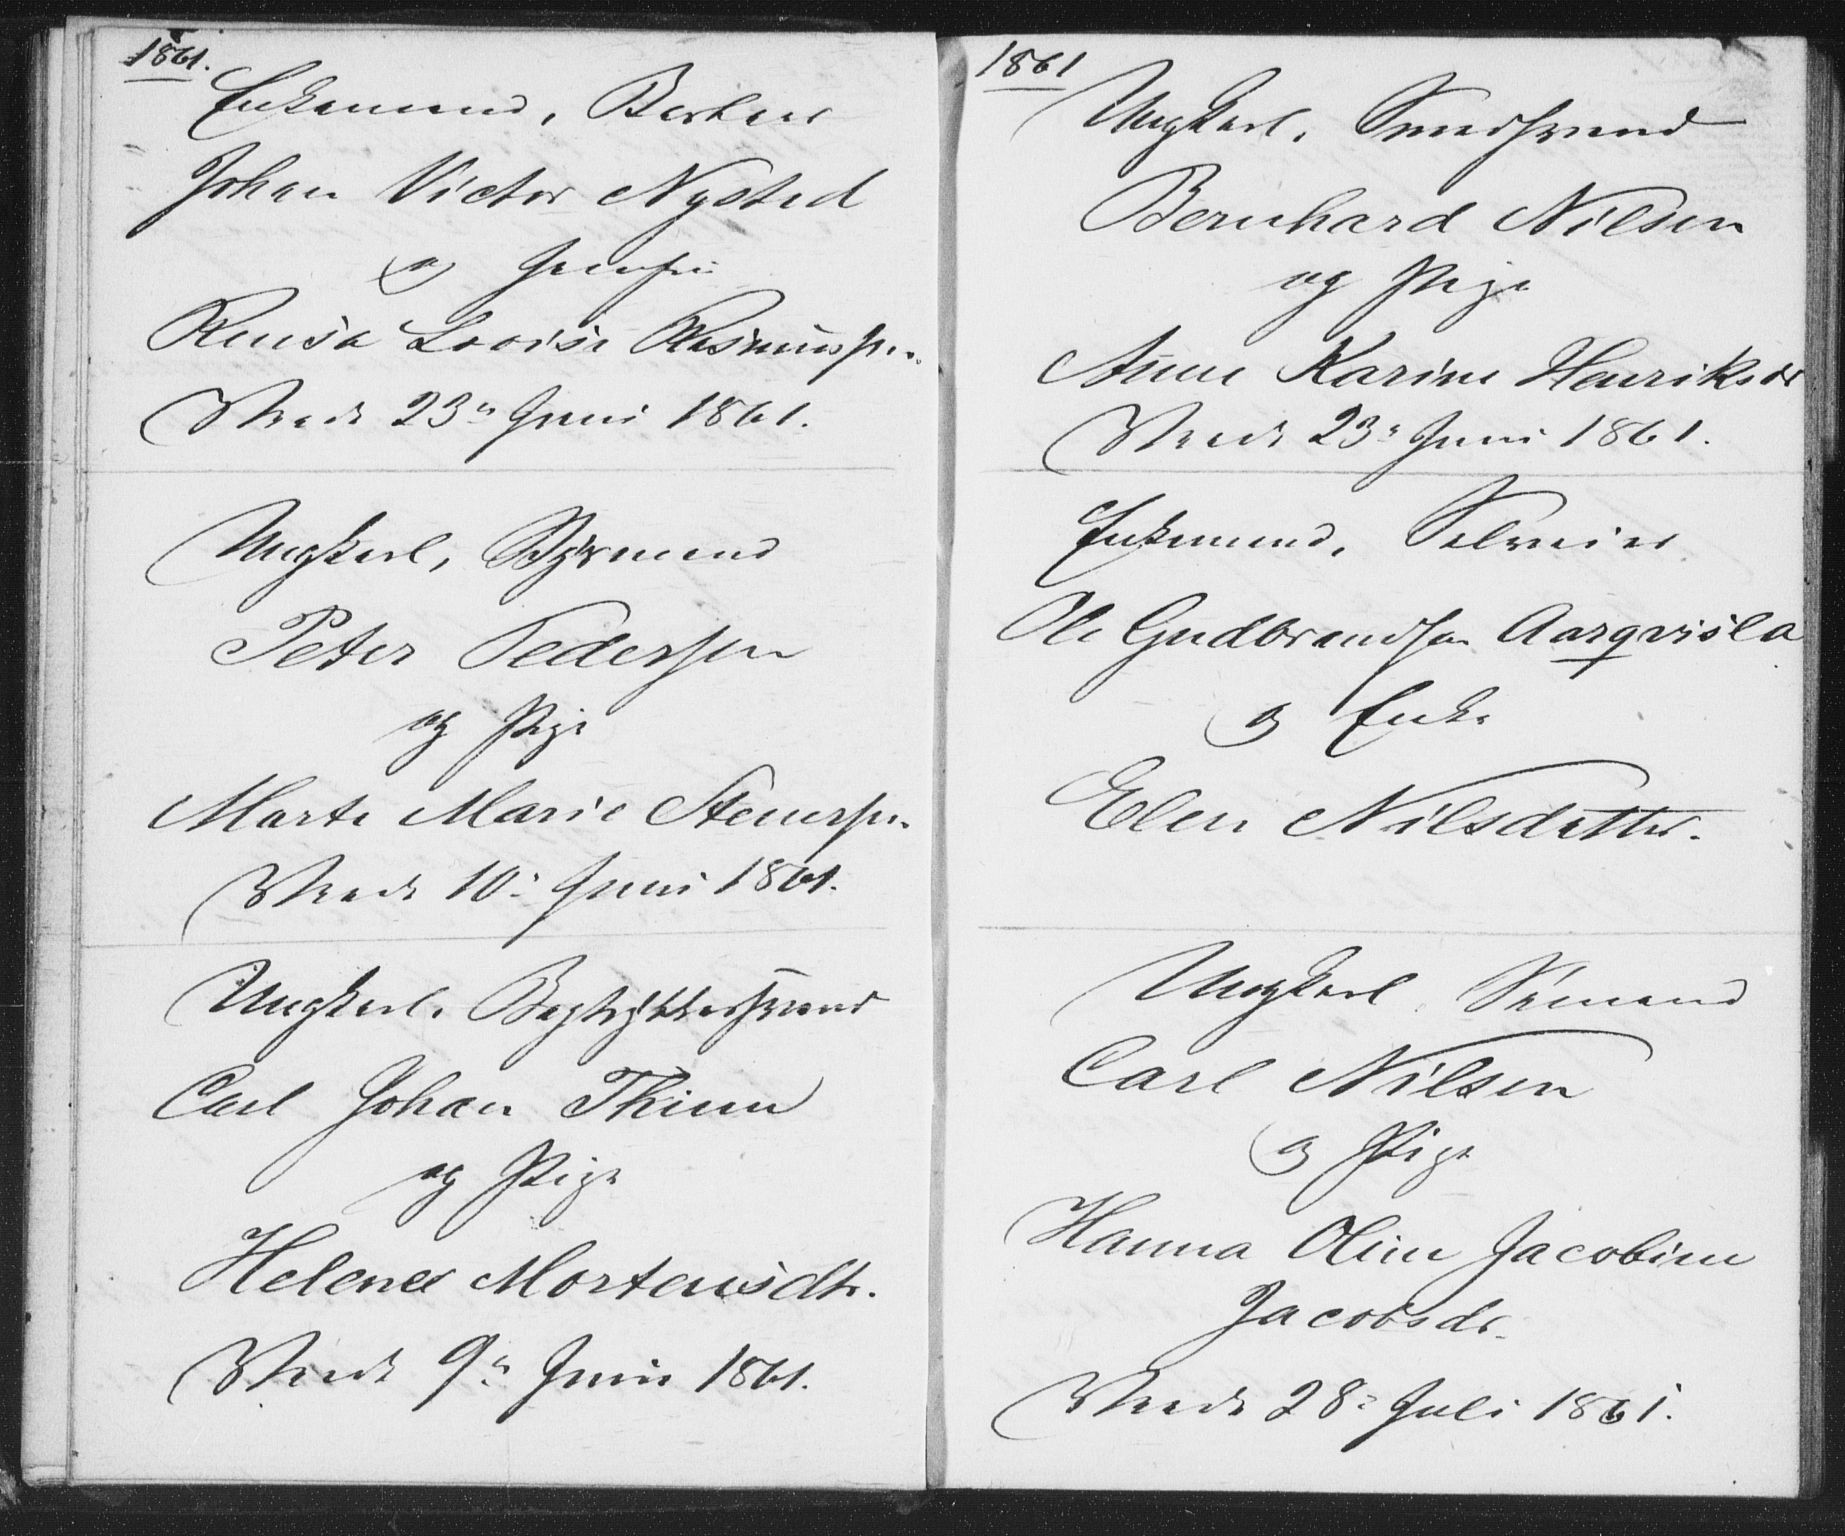 1861.
Enkemand, Barber
Johan Victor Nysted
og Jomfru
Lovise Rasmussen.
Viede 23de Juni 1861.
Ungkarl, Bymand
Peter Pedersen
og Pige
Marte Marie Stenersen.
Viede 10de Juni 1861.
Ungkarl, Bogtrykkersvend
Carl Johan Thinn
og Pige
Helene Mortensdtr.
Viede 9de Juni 1861.
1861
Ungkarl, Smedsvend
Bernhard Nilsen
og Pige
Anne Karine Henriksdr
Viede 23de Juni 1861.
Enkemand, Selveier
Ole Gudbrandsen Aarqvisla
og Enke
Elen Nilsdatter.
Ungkarl, Sømand
Carl Nilsen
og Pige
Hanna Oline Jacobine
Jacobsdr.
Viede 28de Juli 1861.